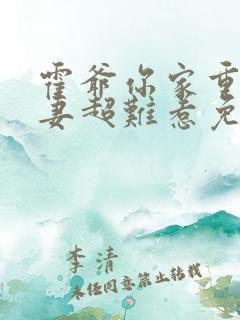 霍爷你家重
妻超难惹免
李清
未经同意禁止转载